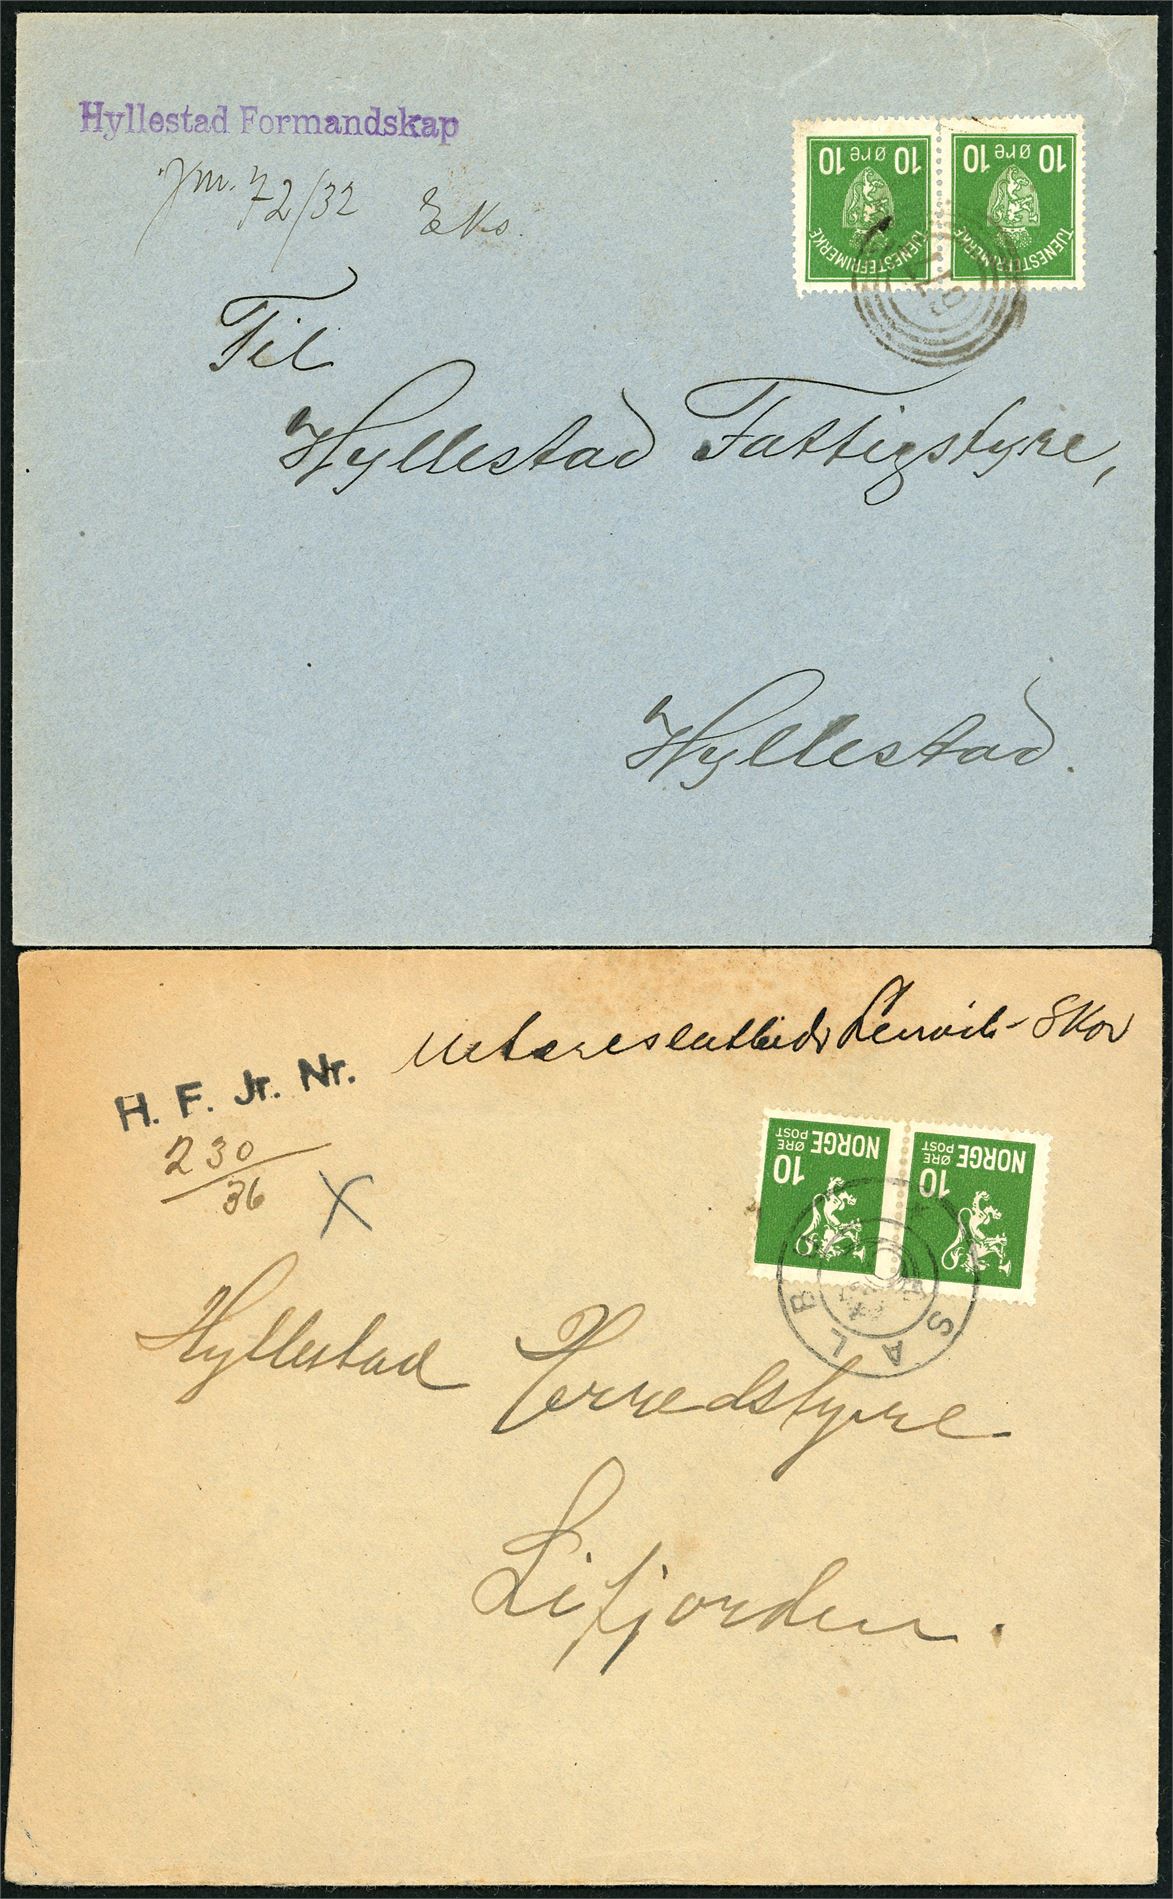 Hyllestad Formandskap
Jm. 72/32 Eks.
10 øre 10 10 øre 10
TJENESTEFRIMERKE TJENESTEFRIMERKE
Til
Hyllestad Fattigstyre,
Hyllestad.
H. F. Jr. Nr.
230/36
X
NORGE POST ØRE 10
NORGE POST ØRE 10
SALB
Hyllestad Herredstyre
Lifjorden.